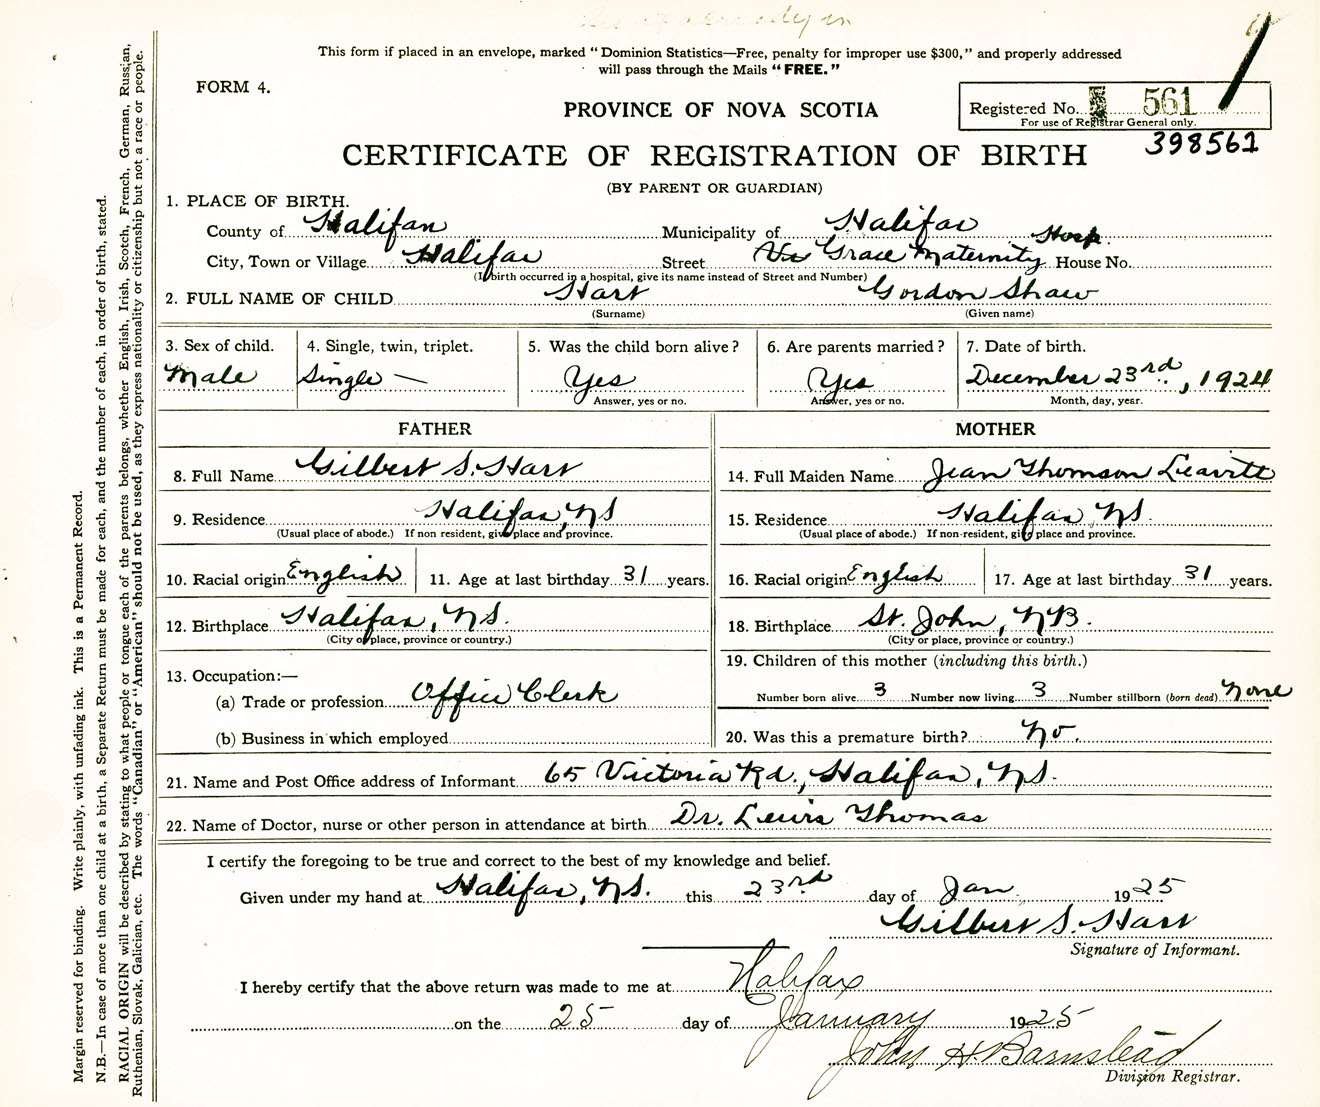 This form if placed in an envelope, marked “Dominion Statistics—Free, penalty for improper use $300,” and properly addressed
will pass through the Mails “FREE.”
FORM 4.
PROVINCE OF NOVA SCOTIA
Registered No. 561
For use of Registrar General only.
398561
CERTIFICATE OF REGISTRATION OF BIRTH
(BY PARENT OR GUARDIAN)
1. PLACE OF BIRTH.
County of Halifax Municipality of Halifax
City, Town or Village Halifax Street Grace Maternity Hosp. House No.
(If birth occurred in a hospital, give its name instead of Street and Number)
2. FULL NAME OF CHILD Hart Gordon Shaw
(Surname) (Given name)
3. Sex of child. 4. Single, twin, triplet. 5. Was the child born alive? 6. Are parents married? 7. Date of birth.
Male Single — Yes Yes December 23rd, 1924
Answer, yes or no. Answer, yes or no. Month, day, year.
FATHER MOTHER
8. Full Name Gilbert S. Hart 14. Full Maiden Name Jean Thomson Leavitt
9. Residence Halifax, NS 15. Residence Halifax NS.
(Usual place of abode.) If non resident, give place and province. (Usual place of abode.) If non-resident, give place and province.
10. Racial origin English 11. Age at last birthday 31 years. 16. Racial origin English 17. Age at last birthday 31 years.
12. Birthplace Halifax, NS. 18. Birthplace St. John, NB.
(City or place, province or country.) (City or place, province or country.)
19. Children of this mother (including this birth.)
13. Occupation:—
(a) Trade or profession Office Clerk Number born alive 3 Number now living 3 Number stillborn (born dead) None
(b) Business in which employed 20. Was this a premature birth? No.
21. Name and Post Office address of Informant 65 Victoria Rd., Halifax, NS.
22. Name of Doctor, nurse or other person in attendance at birth Dr. Lewis Thomas
I certify the foregoing to be true and correct to the best of my knowledge and belief.
Given under my hand at Halifax, NS. this 23rd day of Jan. 1925
Gilbert S. Hart
Signature of Informant.
I hereby certify that the above return was made to me at Halifax
on the 25 day of January 1925
John H. Barnstead
Division Registrar.
Margin reserved for binding. Write plainly, with unfading ink. This is a Permanent Record.
N.B.—In case of more than one child at a birth, a Separate Return must be made for each, and the number of each, in order of birth, stated.
RACIAL ORIGIN will be described by stating to what people or tongue each of the parents belongs, whether English, Irish, Scotch, French, German, Russian,
Ruthenian, Slovak, Galician, etc. The words “Canadian” or “American” should not be used, as they express nationality or citizenship but not a race or people.